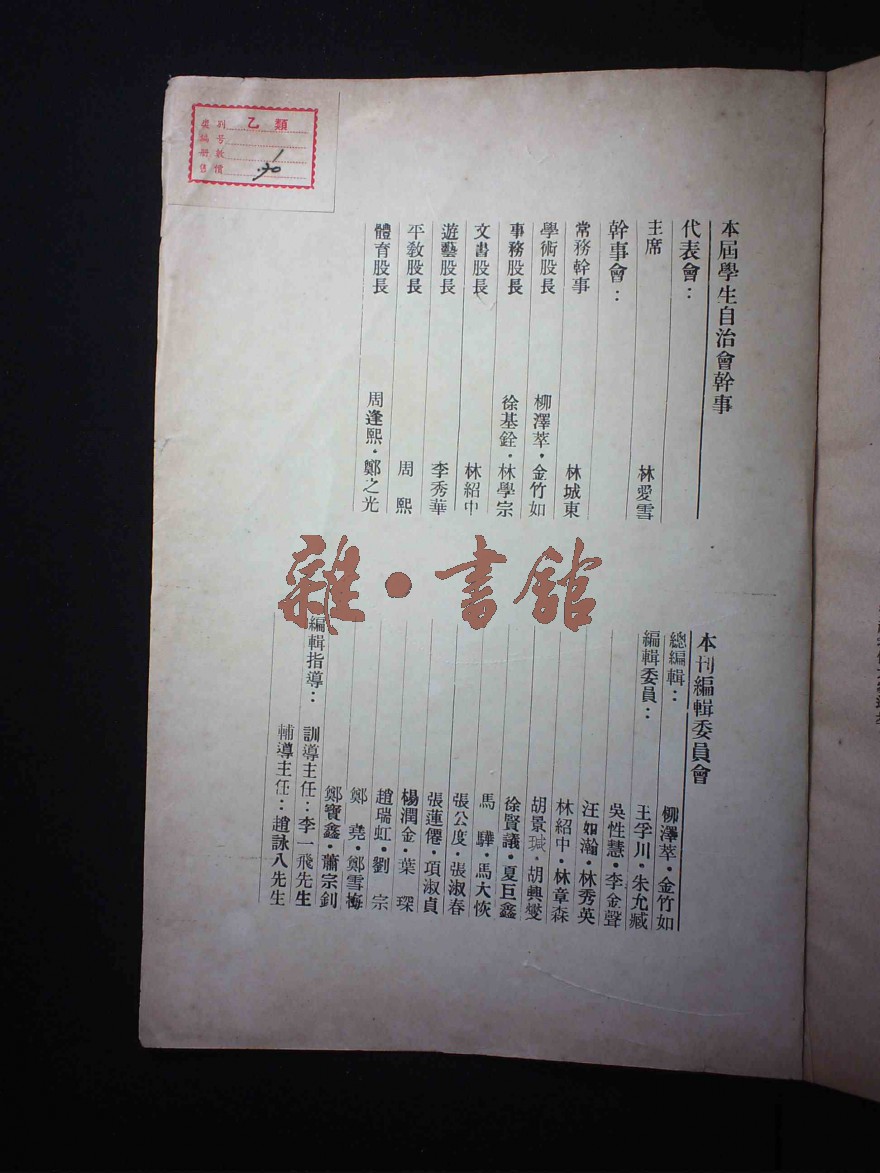 乙類
類別
編号
册數
售價
1
.70
本屆學生自治會幹事
代表會：
主席 林愛雪
幹事會：
常務幹事 林城東
學術股長 柳澤萃·金竹如
事務股長 徐基銓·林學宗
文書股長 林紹中
遊藝股長 李秀華
平教股長 周熙
體育股長 周逢熙·鄭之光
雜·書館
本刊編輯委員會
總編輯： 柳澤萃·金竹如
編輯委員： 王孚川·朱允臧
吳性慧·李金聲
汪如瀚·林秀英
林紹中·林章森
胡景瑊·胡興燮
徐賢議·夏巨鑫
馬驊·馬大恢
張公度·張淑春
張蓮僊·項淑貞
楊潤金·葉琛
趙瑞虹·劉宗
鄭堯·鄭雪梅
鄭寶鑫·蕭宗釗
編輯指導： 訓導主任：李一飛先生
輔導主任：趙詠八先生